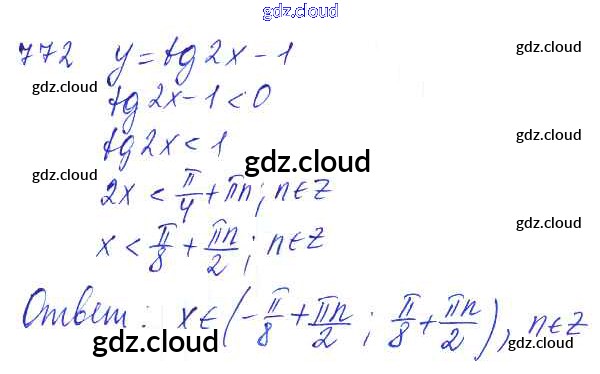 gdz.cloud
772 y = tg 2x - 1
gdz.cloud gdz.cloud
tg 2x - 1 < 0
gdz.cloud
tg 2x < 1
gdz.cloud
gdz.cloud
2x < π/4 + πn; n∈Z
x < π/8 + πn/2; n∈Z
gdz.cloud
Ответ: x∈(-π/8 + πn/2; π/8 + πn/2), n∈Z
gdz.cloud gdz.cloud